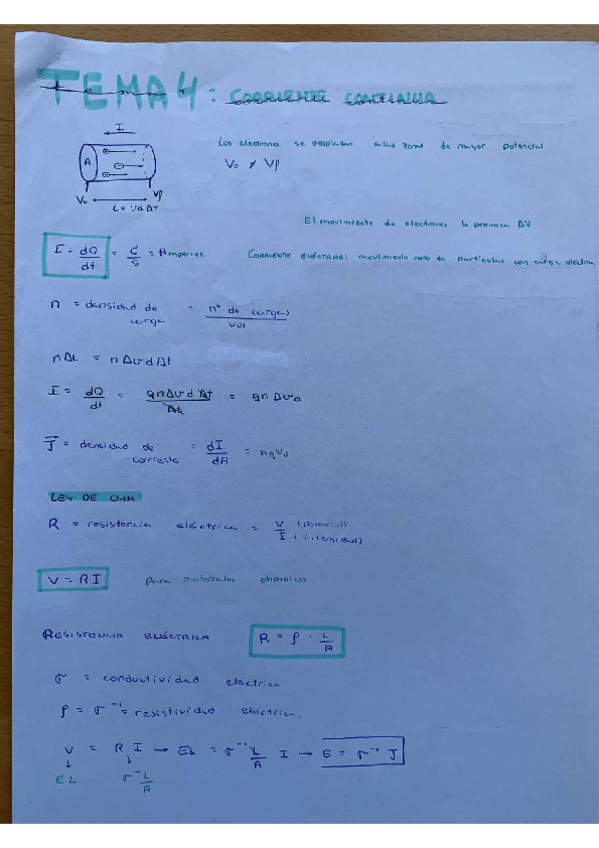 TEMA 4: CORRIENTE CONTINUA
I
A
V₀ Vf
L = Vd Δt
Los electrones se desplazan a las zonas de mayor potencial
V₀ ≠ Vf
El movimiento de electrones lo provoca ΔV
I = dQ/dt = C/S = Amperios
CORRIENTE ELÉCTRICA: movimiento neto de partículas con carga eléctrica
n = densidad de carga = nº de cargas/vol
nAL = nAVdΔt
I = dQ/dt = qnAVdΔt/Δt = qnAVd
J = densidad de corriente = dI/dA = nqVd
LEY DE OHM
R = resistencia eléctrica = V (potencial)/I (intensidad)
V = RI para materiales ohmicos
RESISTENCIA ELÉCTRICA R = ρ · L/A
σ = conductividad eléctrica
ρ = σ⁻¹ = resistividad eléctrica.
V = R I → EL = σ⁻¹ L/A I → E = σ⁻¹ J
EL σ⁻¹ L/A